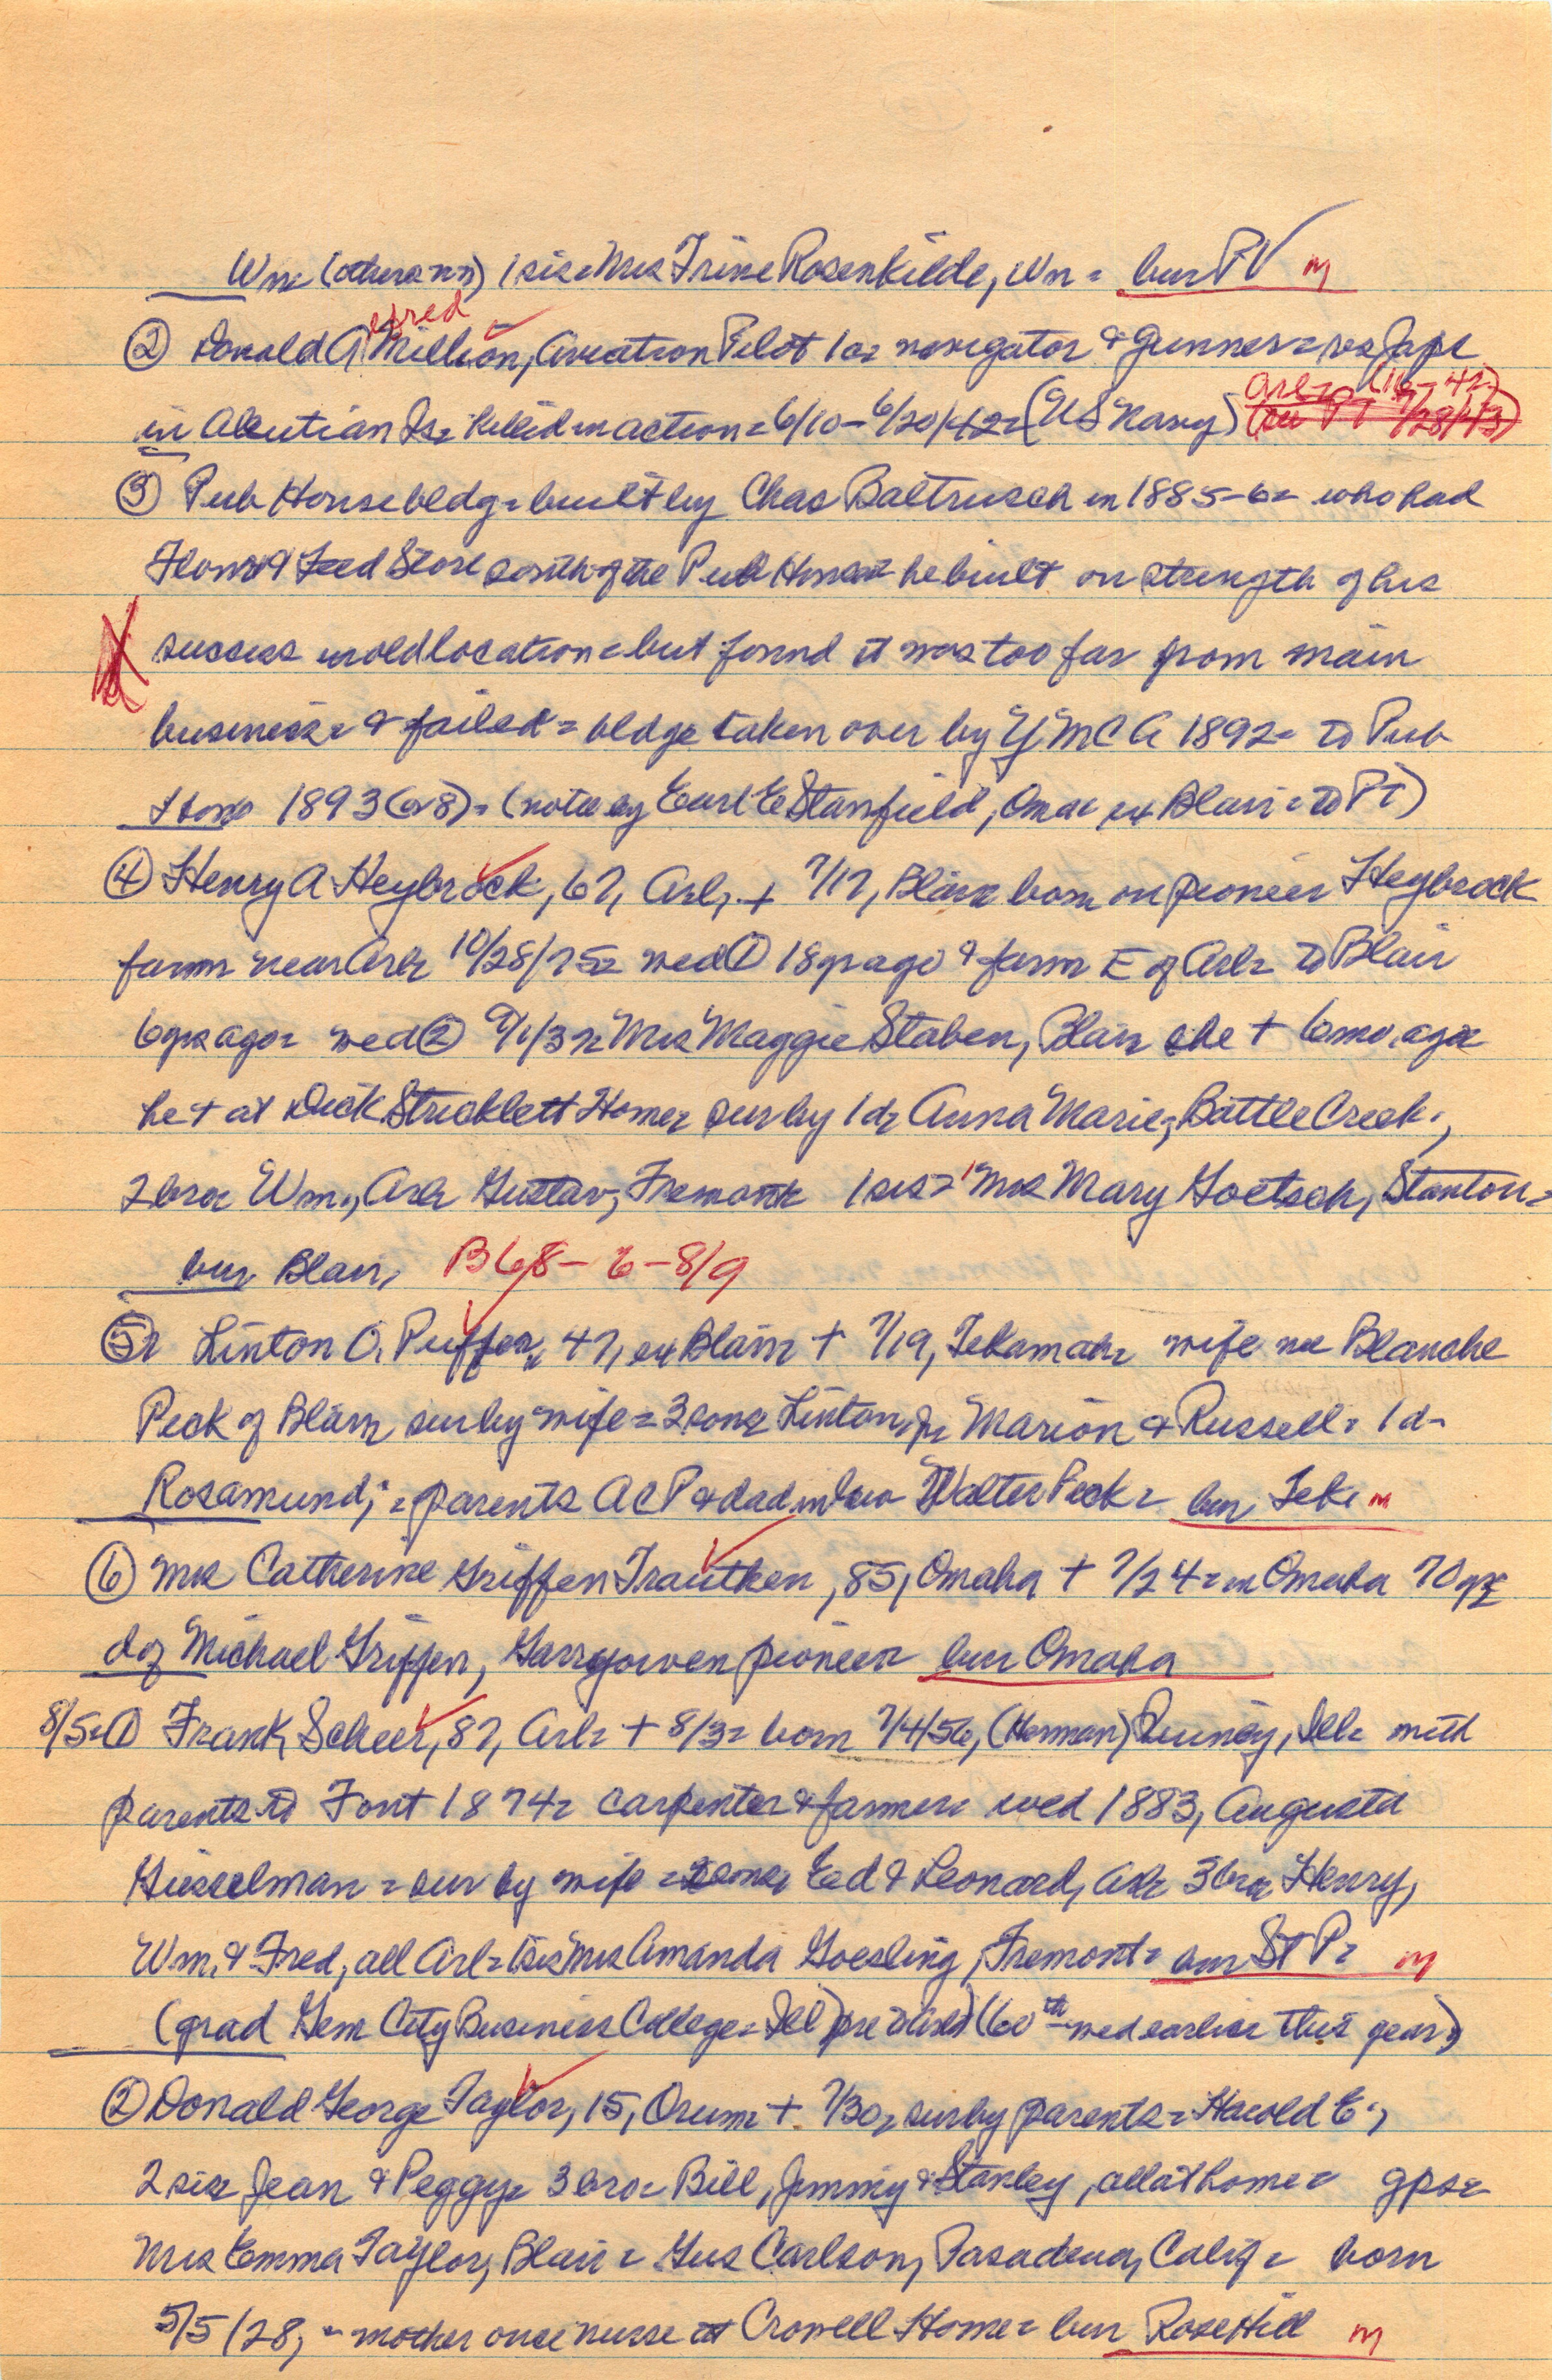 Wm (others nn) 1 sis = Mrs Trine Rosenkilde, Wm = bur PV m
efred
② Donald A. Million, Aviation Pilot 1c = navigator & gunner = vs Japs
Arl = (118-42)
in Aleutian Is = killed in action = 6/10 - 6/20/42 = (US Navy) (see PT 7/28/43)
③ Pub House bldg = built by Chas Baltrusch in 1885-6 = who had
Flour & Feed Store south of the Pub House = he built on strength of his
success in old location = but found it was too far from main
business = & failed = bldg = taken over by YMCA 1892 = to Pub
House 1893 (or 8) = (note by Earl E Stanfield, Oma = ex Blair = to PT)
④ Henry A Heybrock, 67, Arl, + 7/17, Blair = born on pioneer Heybrock
farm near Arl = 10/28/75 = wed ① 18 yr ago & farm E of Arl = to Blair
6 yrs ago = wed ② Mrs Maggie Staben, Blair = she + 6 mo. ago =
he + at Dick Stricklett Home = sur by 1 d = Anna Marie, Battle Creek.,
2 bro = Wm., Arl = Gustav, Fremont = 1 sis = Mrs Mary Goetsch, Stanton =
bur Blair, B 68 - 6 - 8/9
⑤ = Linton O. Puffer, 47, ex Blair = + 7/19, Tekamah = wife nee Blanche
Peck of Blair = sur by wife = 3 sons = Linton, jr = Marion & Russell = 1 d =
Rosamund; = parents A C P & dad in law Walter Peck = bur, Tek. m
⑥ Mrs Catherine Griffen Trautken, 85, Omaha + 7/24 = in Omaha 70 yr =
d of Michael Griffen, Garryowen pioneer = bur Omaha
8/5 = ① Frank Scheer, 87, Arl = + 8/3 = born 7/4/56, (Herman) Quincy, Ill = with
parents to Font 1874 = carpenter & farmer = wed 1883, Augusta
Giesselman = sur by wife = 2 sons, Ed & Leonard, Arl = 3 bro = Henry,
Wm. & Fred, all Arl = 1 sis Mrs Amanda Goesling, Fremont = bur St P = m
(grad Gem City Business College = Ill) (60th wed earlier this year)
② Donald George Taylor, 15, Orum = + 7/30, sur by parents = Harold E.,
2 sis = Jean & Peggy = 3 bro = Bill, Jimmy & Stanley, all at home = gps =
Mrs Emma Taylor, Blair = Gus Carlson, Pasadena, Calif = born
5/5/28, = mother once nurse at Crowell Home = bur Rose Hill m